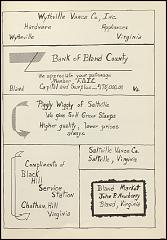 Wytheville Vance Co., Inc.
Hardware Appliances
Wytheville Virginia
Bank of Bland County
We appreciate your patronage
Member F.D.I.C.
Bland Capital and Surplus $170,000.00 Va.
Piggly Wiggly of Saltville
We give S&H Green Stamps
Higher quality, lower prices
always.
Compliments of
Black
Hill
Service
Station
Chatham Hill
Virginia
Saltville Vance Co.
Saltville, Virginia
Bland Market
John P. Newberry
Bland, Virginia